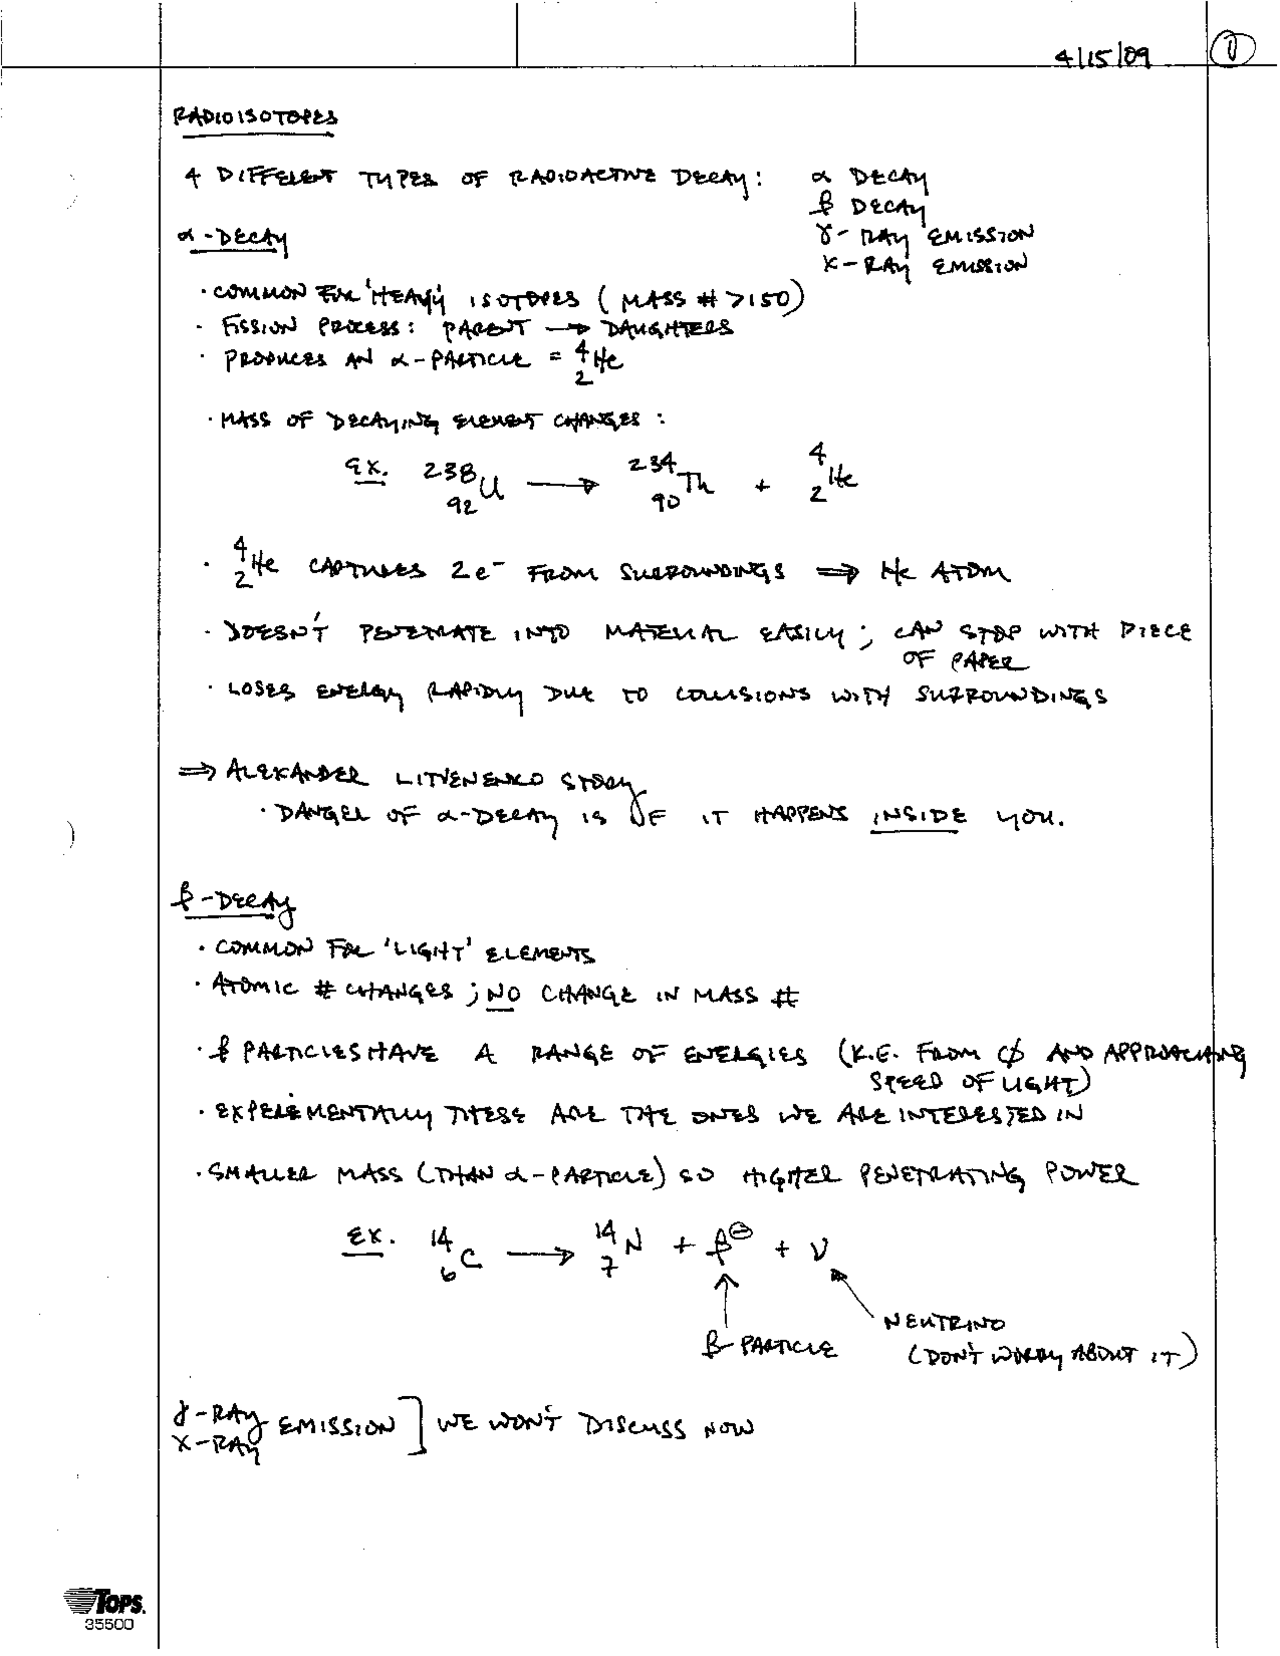 4/15/09 1
RADIOISOTOPES
4 DIFFERENT TYPES OF RADIOACTIVE DECAY: α DECAY
β DECAY
γ-RAY EMISSION
X-RAY EMISSION
α-DECAY
· COMMON FOR 'HEAVY' ISOTOPES (MASS # >150)
· FISSION PROCESS: PARENT → DAUGHTERS
· PRODUCES AN α-PARTICLE = ⁴₂He
· MASS OF DECAYING ELEMENT CHANGES:
EX. ²³⁸₉₂U → ²³⁴₉₀Th + ⁴₂He
· ⁴₂He CAPTURES 2e⁻ FROM SURROUNDINGS ⇒ He ATOM
· DOESN'T PENETRATE INTO MATERIAL EASILY; CAN STOP WITH PIECE
OF PAPER
· LOSES ENERGY RAPIDLY DUE TO COLLISIONS WITH SURROUNDINGS
⇒ ALEXANDER LITVENENKO STORY
· DANGER OF α-DECAY IS IF IT HAPPENS INSIDE YOU.
β-DECAY
· COMMON FOR 'LIGHT' ELEMENTS
· ATOMIC # CHANGES; NO CHANGE IN MASS #
· β PARTICLES HAVE A RANGE OF ENERGIES (K.E. FROM ∅ AND APPROACHING
SPEED OF LIGHT)
· EXPEREMENTALLY THESE ARE THE ONES WE ARE INTERESTED IN
· SMALLER MASS (THAN α-PARTICLE) SO HIGHER PENETRATING POWER
EX. ¹⁴₆C → ¹⁴₇N + β⊖ + ν
NEUTRINO
β-PARTICLE (DON'T WORRY ABOUT IT)
γ-RAY
X-RAY EMISSION] WE WON'T DISCUSS NOW
TOPS.
35500